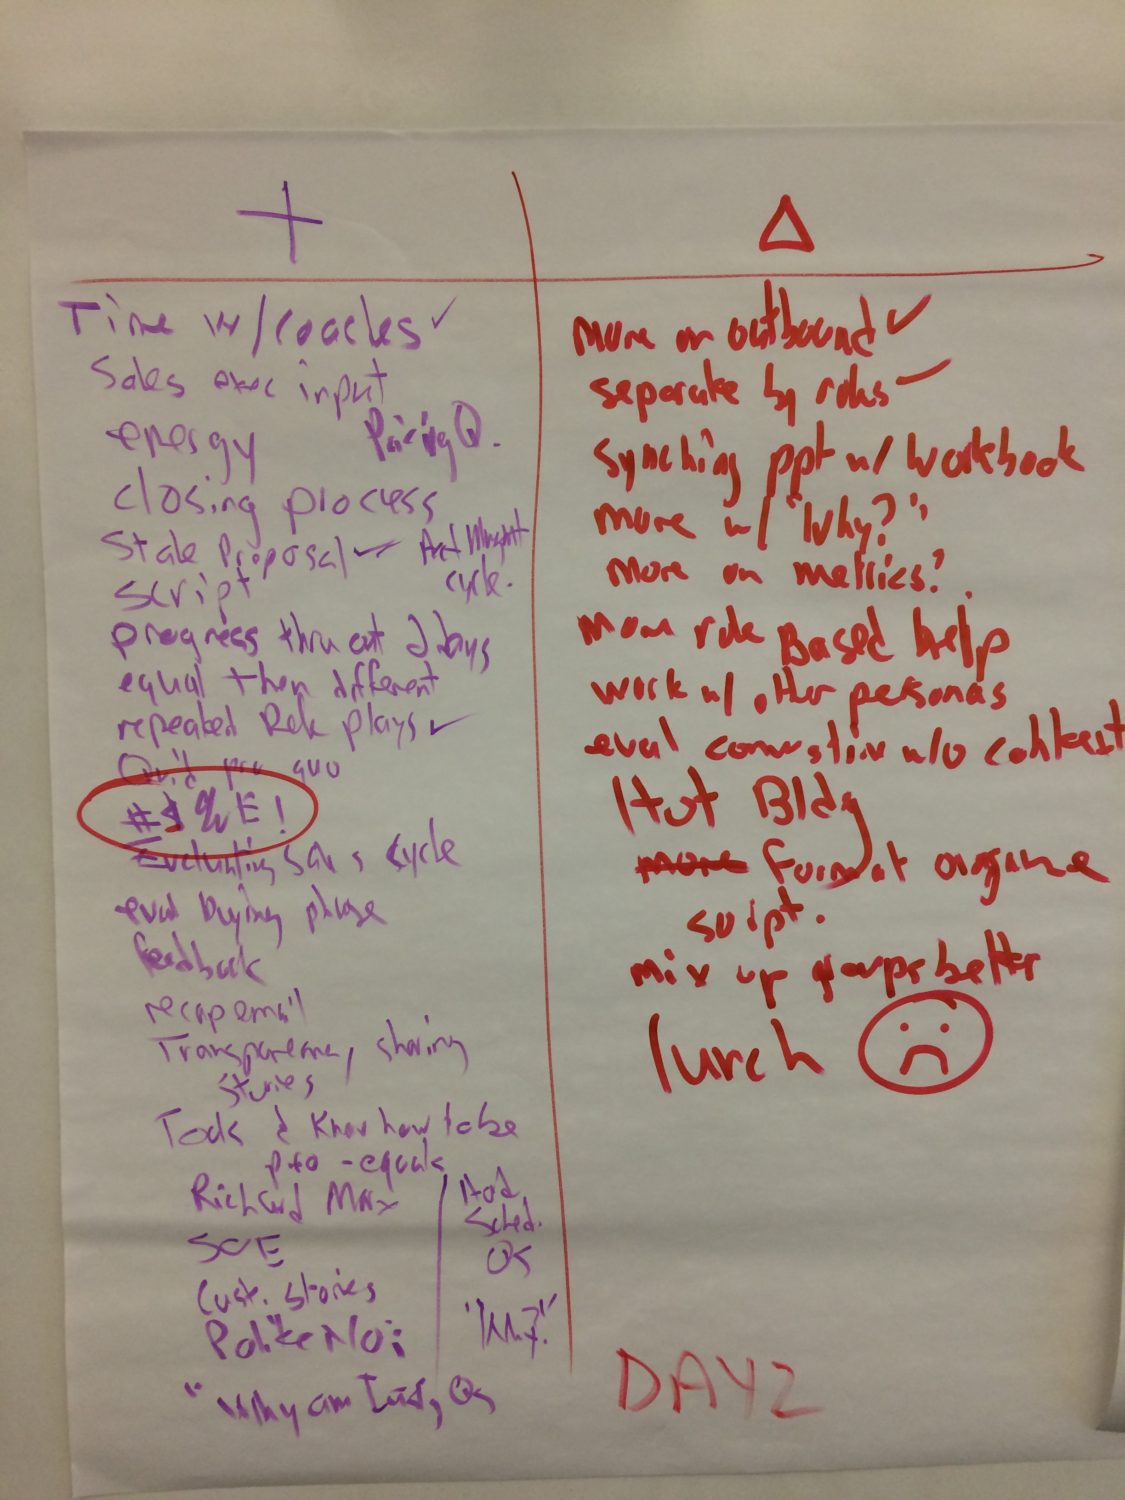 +
Time w/coaches ✓
Sales exec input
energy Pricing Q.
closing process
Stale Proposal ✓ Act Mngmt
script cycle.
progress thru out 2 days
equal then different
repeated Role plays ✓
Quid pro quo
#$%E!
Evaluating Sales cycle
eval buying phase
feedback
recap email
Transparency, sharing
stories
Tools & Know how to be
pro-equals
Richard Max
SCE
Cust. Stories
Polite No:
"Why am I
Sched.
Qs
Δ
more on outbound ✓
separate by roles ✓
synching ppt w/ workbook
more w/ "Why?"
more on metrics?
more role Based help
work w/ other personas
eval w/o context
Hot Bldg
more format organize
script.
mix up groups better
lunch
DAY 2